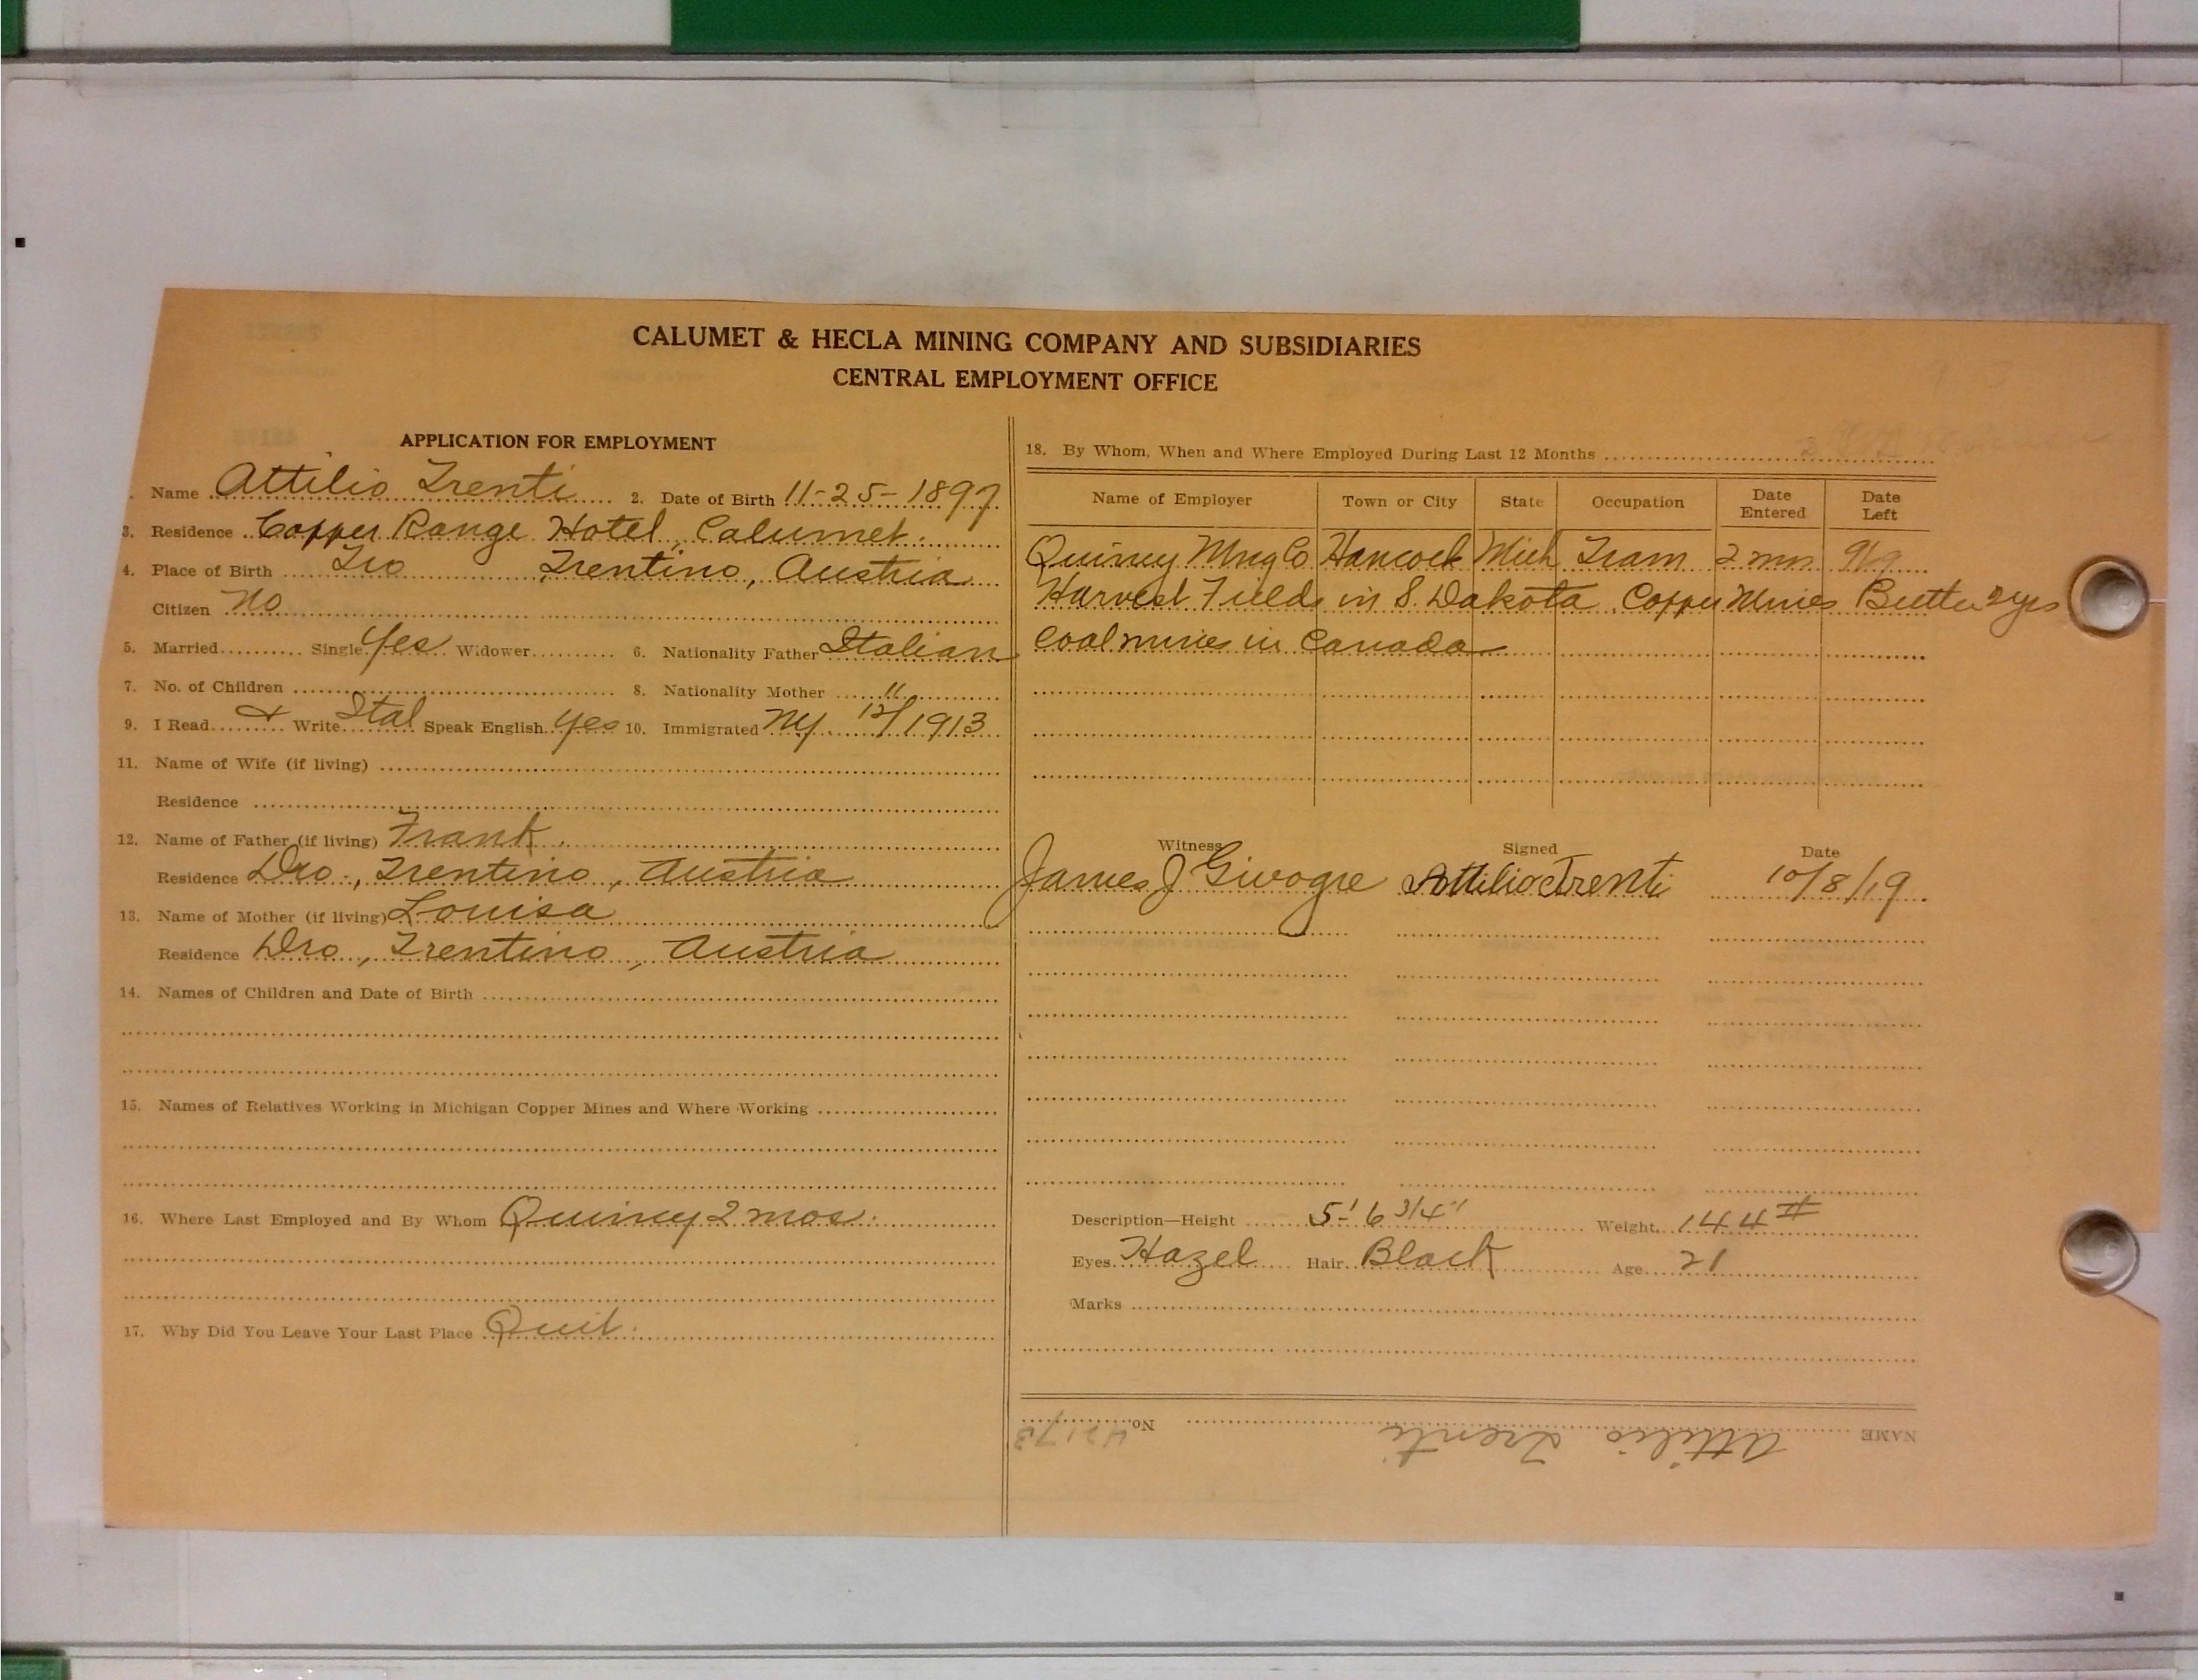 CALUMET & HECLA MINING COMPANY AND SUBSIDIARIES
CENTRAL EMPLOYMENT OFFICE
APPLICATION FOR EMPLOYMENT
. Name Attilio Trenti 2. Date of Birth 11-25-1897
3. Residence Copper Range Hotel, Calumet.
4. Place of Birth Dro Trentino, Austria
Citizen No
5. Married Single Yes Widower 6. Nationality Father Italian
7. No. of Children 8. Nationality Mother "
9. I Read & Write Ital Speak English Yes 10. Immigrated NY. 12/1913
11. Name of Wife (if living)
Residence
12. Name of Father (if living) Frank
Residence Dro, Trentino, Austria
13. Name of Mother (if living) Louisa
Residence Dro, Trentino, Austria
14. Names of Children and Date of Birth
15. Names of Relatives Working in Michigan Copper Mines and Where Working
16. Where Last Employed and By Whom Quincy 2 mos.
17. Why Did You Leave Your Last Place Quit.
18. By Whom, When and Where Employed During Last 12 Months
Name of Employer Town or City State Occupation Date Entered Date Left
Quincy Mng Co Hancock Mich Tram 2 mos 9/19
Harvest Fields in S. Dakota Copper Mines Butte 2 yrs
Coal mines in Canada
Witness Signed Date
James J Givogre Attilio Trenti 10/8/19
Description—Height 5' 6 3/4" Weight 144 #
Eyes Hazel Hair Black Age 21
Marks
NAME Attilio Trenti No. 42173